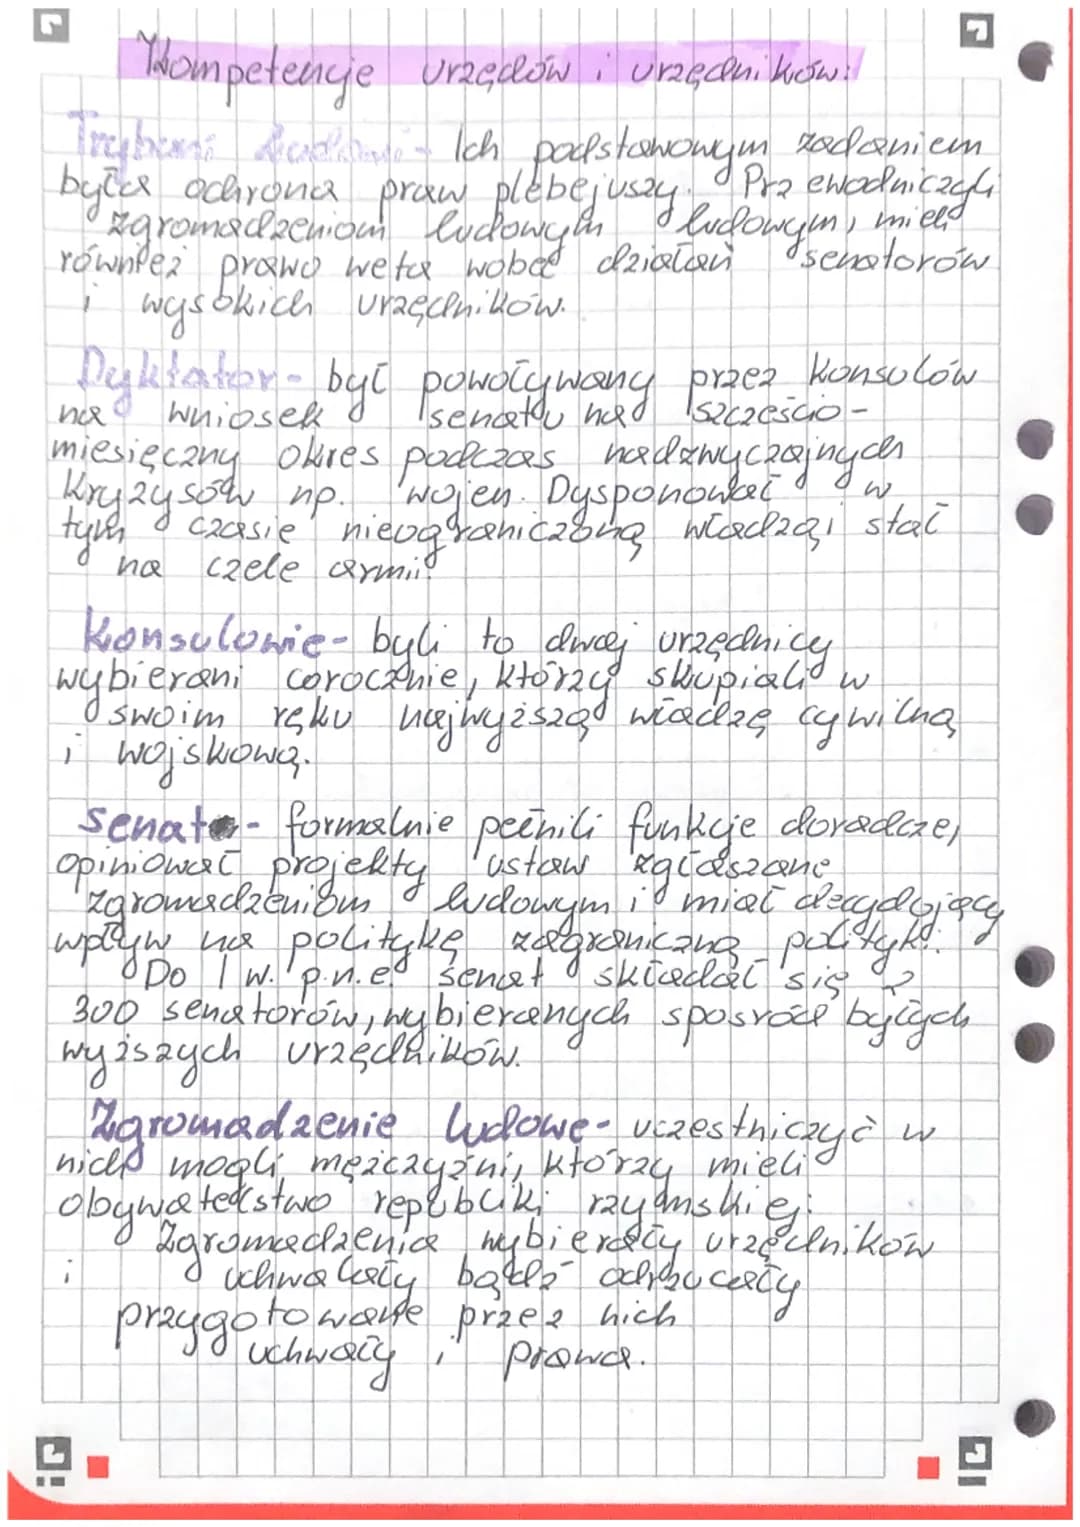 Kompetencje urzędów i urzędników:
Trybuni Ludowi - Ich podstawowym zadaniem
była ochrona praw plebejuszy. Przewodniczyli
zgromadzeniom ludowym ludowym, mieli
również prawo weta wobec działań senatorów
i wysokich urzędników.
Dyktator - był powoływany przez Konsulów
na wniosek senatu na sześcio-
miesięczny okres podczas nadzwyczajnych
Kryzysów np. wojen. Dysponował w
tym czasie nieograniczoną władzą i stał
na czele armii.
Konsulowie - byli to dwaj urzędnicy
wybierani corocznie, którzy skupiali w
swoim ręku najwyższą władzę cywilną
i wojskową.
Senat - formalnie pełnili funkcje doradcze,
opiniował projekty ustaw zgłaszane
zgromadzeniom ludowym i miał decydujący
wpływ na politykę zagraniczną polityki.
Do I w. p.n.e. senat składał się z
300 senatorów, wybieranych spośród byłych
wyższych urzędników.
Zgromadzenie ludowe - uczestniczyć w
nich mogli mężczyźni, którzy mieli
obywatelstwo republiki rzymskiej.
Zgromadzenia wybierały urzędników
i uchwalały bądź odrzucały
przygotowane przez nich
uchwały i prawa.